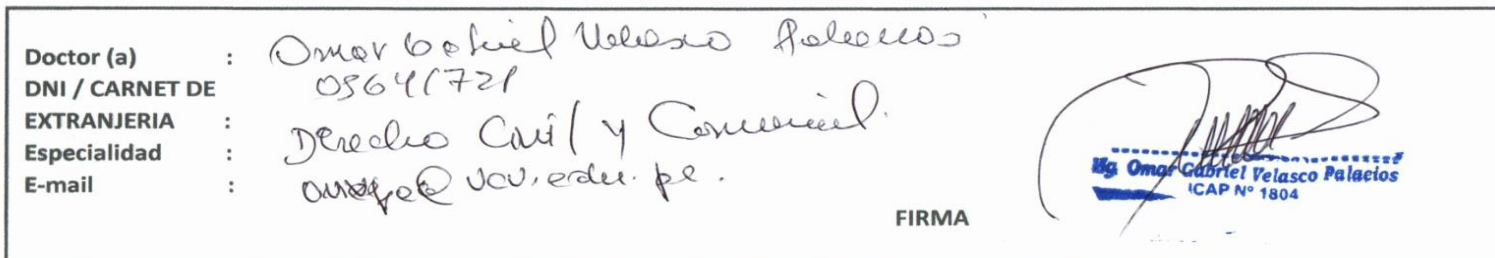 Doctor (a) : Omar Gabriel Velasco Palacios
DNI / CARNET DE
EXTRANJERIA :
Especialidad : Derecho Civil y Comercial.
E-mail : @ucv.edu.pe.
Mg. Omar Gabriel Velasco Palacios
ICAP N° 1804
FIRMA